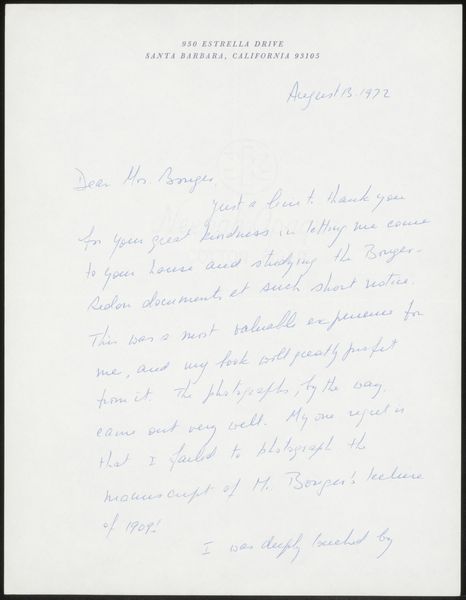 950 ESTRELLA DRIVE
SANTA BARBARA, CALIFORNIA 93105
August 13. 1972
Dear Mrs. Bonger,
Just a line to thank you
for your great kindness in letting me come
to your house and studying the Bonger-
Redon documents at such short notice.
This was a most valuable experience for
me, and my book will greatly profit
from it. The photographs, by the way,
came out very well. My one regret is
that I failed to photograph the
manuscript of M. Bonger's lecture
of 1909!
I was deeply touched by